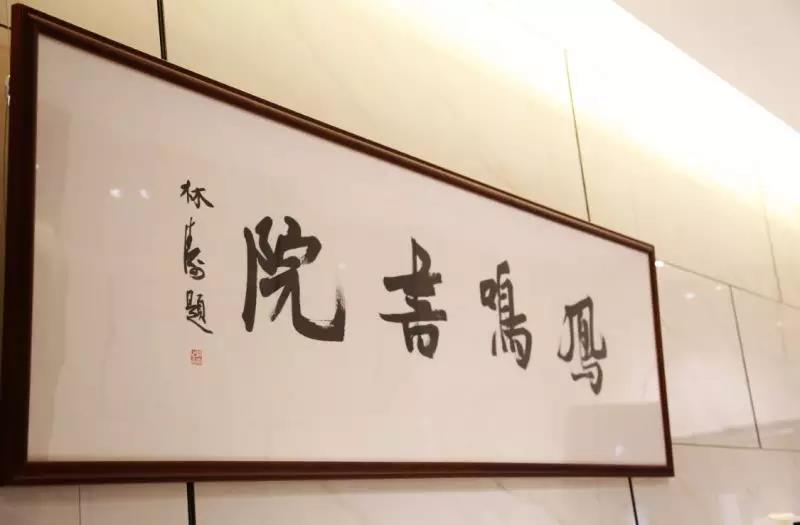 鳳鳴書院
林題